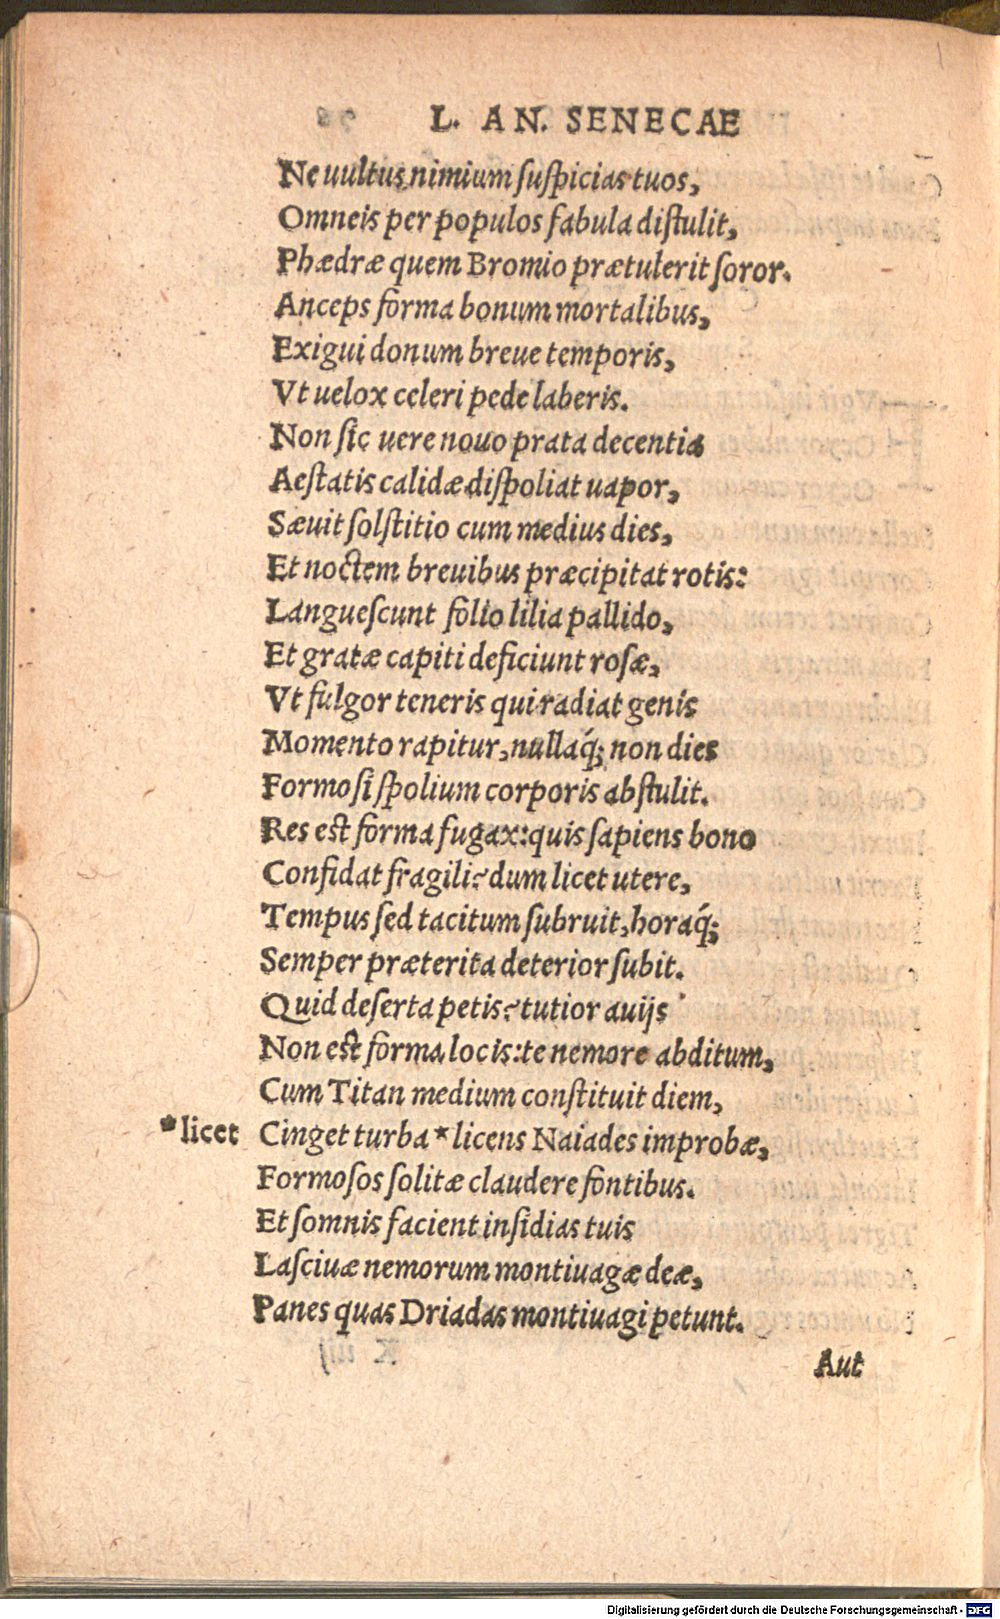 L. AN. SENECAE
Ne uultus nimium ſuſpicias tuos,
Omneis per populos fabula diſtulit,
Phædræ quem Bromio prætulerit ſoror.
Anceps forma bonum mortalibus,
Exigui donum breue temporis,
Vt uelox celeri pede laberis.
Non ſic uere nouo prata decentia
Aeſtatis calidæ diſpoliat uapor,
Sæuit ſolſtitio cum medius dies,
Et noctem breuibus præcipitat rotis:
Langueſcunt folio lilia pallido,
Et gratæ capiti deficiunt roſæ,
Vt fulgor teneris qui radiat genis
Momento rapitur, nullaq́; non dies
Formoſi ſpolium corporis abſtulit.
Res est forma fugax: quis ſapiens bono
Confidat fragili? dum licet utere,
Tempus ſed tacitum ſubruit, horaq́;
Semper præterita deterior ſubit.
Quid deſerta petis? tutior auijs
Non est forma locis: te nemore abditum,
Cum Titan medium conſtituit diem,
*licet Cinget turba * licens Naiades improbæ,
Formoſos ſolitæ claudere fontibus.
Et ſomnis facient inſidias tuis
Laſciuæ nemorum montiuagæ deæ,
Panes quas Driadas montiuagi petunt.
Aut
Digitalisierung gefördert durch die Deutsche Forschungsgemeinschaft - DFG